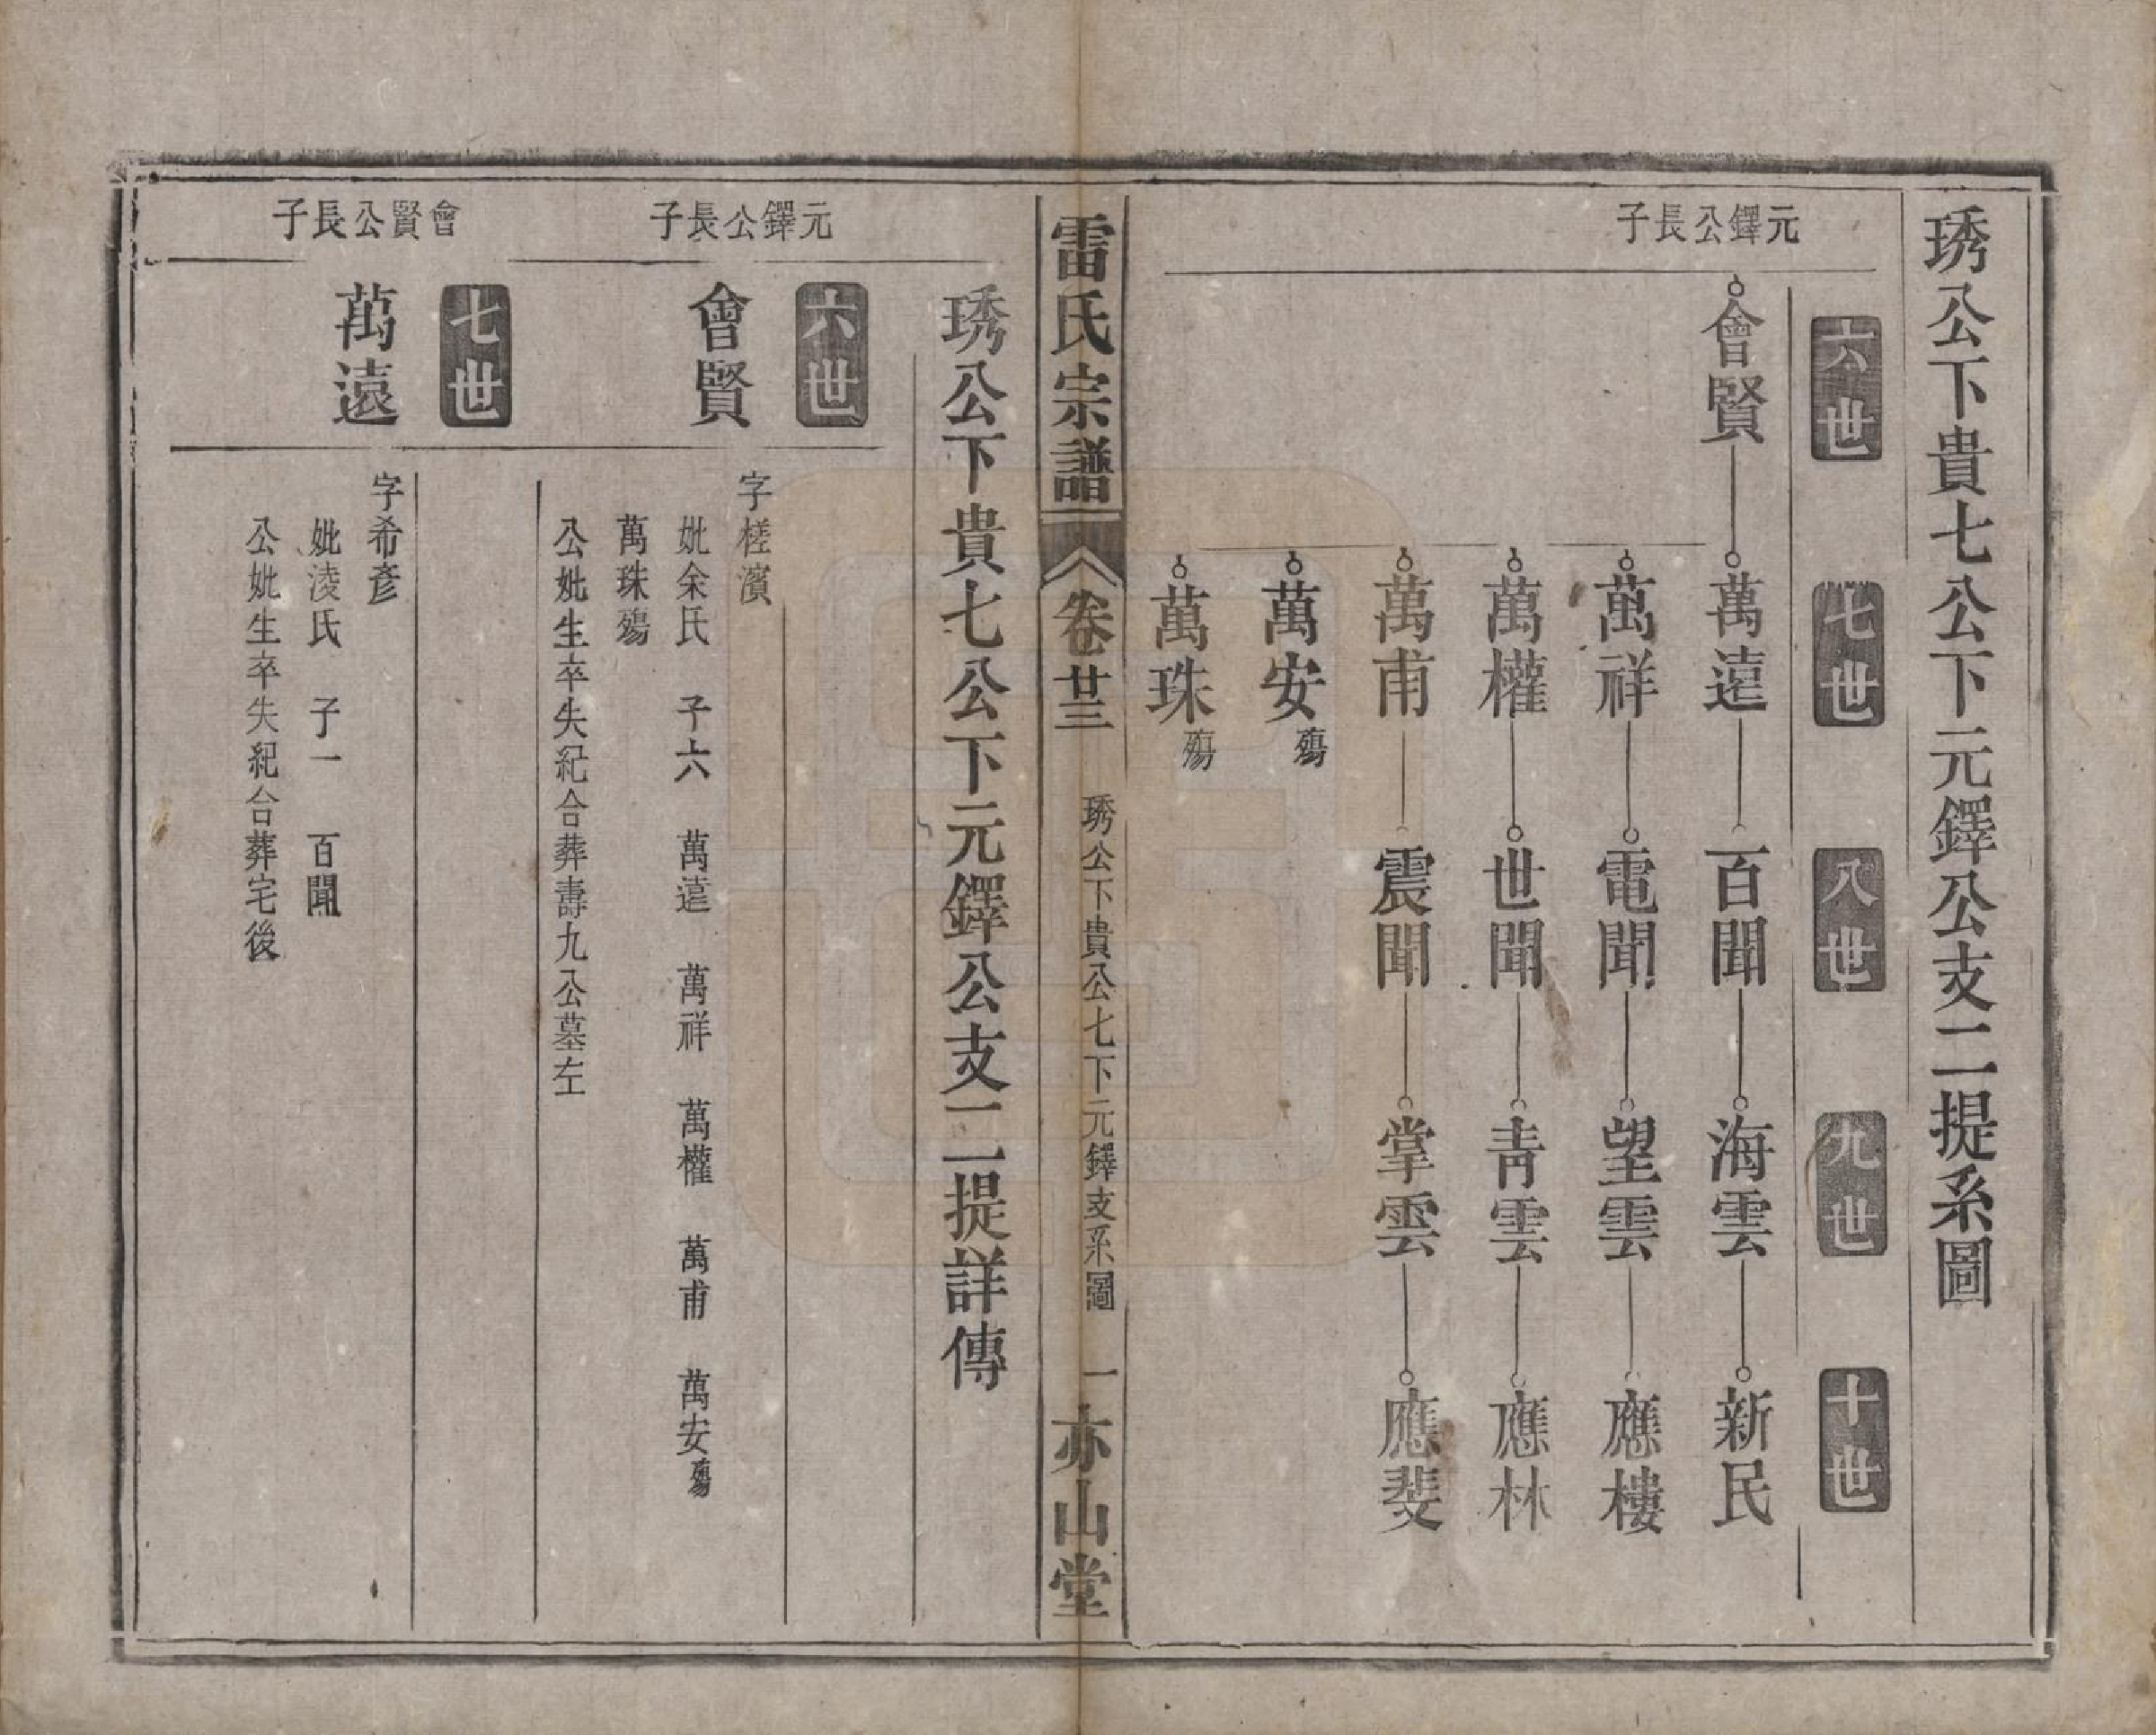 琇公下貴七公下元鐸公支二提系圖
六世
七世
八世
九世
十世
元鐸公長子
會賢
萬遠
百聞
海雲
新民
萬祥
電聞
望雲
應樓
萬權
世聞
青雲
應林
萬甫
震聞
掌雲
應斐
萬安殤
萬珠殤
雷氏宗譜
卷廿三
琇公下貴公七下元鐸支系圖
一
亦山堂
琇公下貴七公下元鐸公支二提詳傳
六世
元鐸公長子
會賢
字槎濱
妣余氏 子六 萬遠 萬祥 萬權 萬甫 萬安殤
萬珠殤
公妣生卒失紀合葬壽九公墓左
七世
會賢公長子
萬遠
字希彥
妣淩氏 子一 百聞
公妣生卒失紀合葬宅後